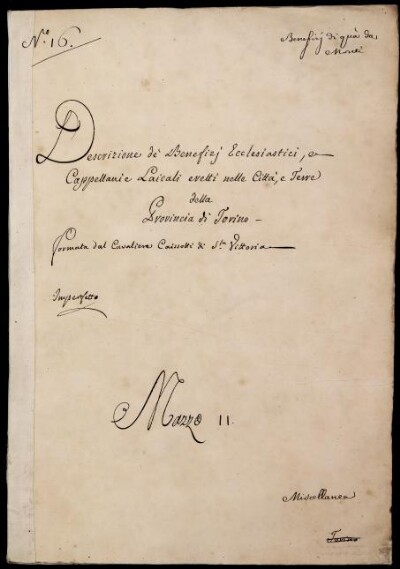 N.º 16.
Benefizj di quà da
Monti
Descrizione de' Benefizj Ecclesiastici, e
Cappellanie Laicali eretti nelle Città, e Terre
della
Provincia di Torino
formata dal Cavaliere Caissotti di S.ta Vittoria
Imperfetta
Mazzo 11
Miscellanea